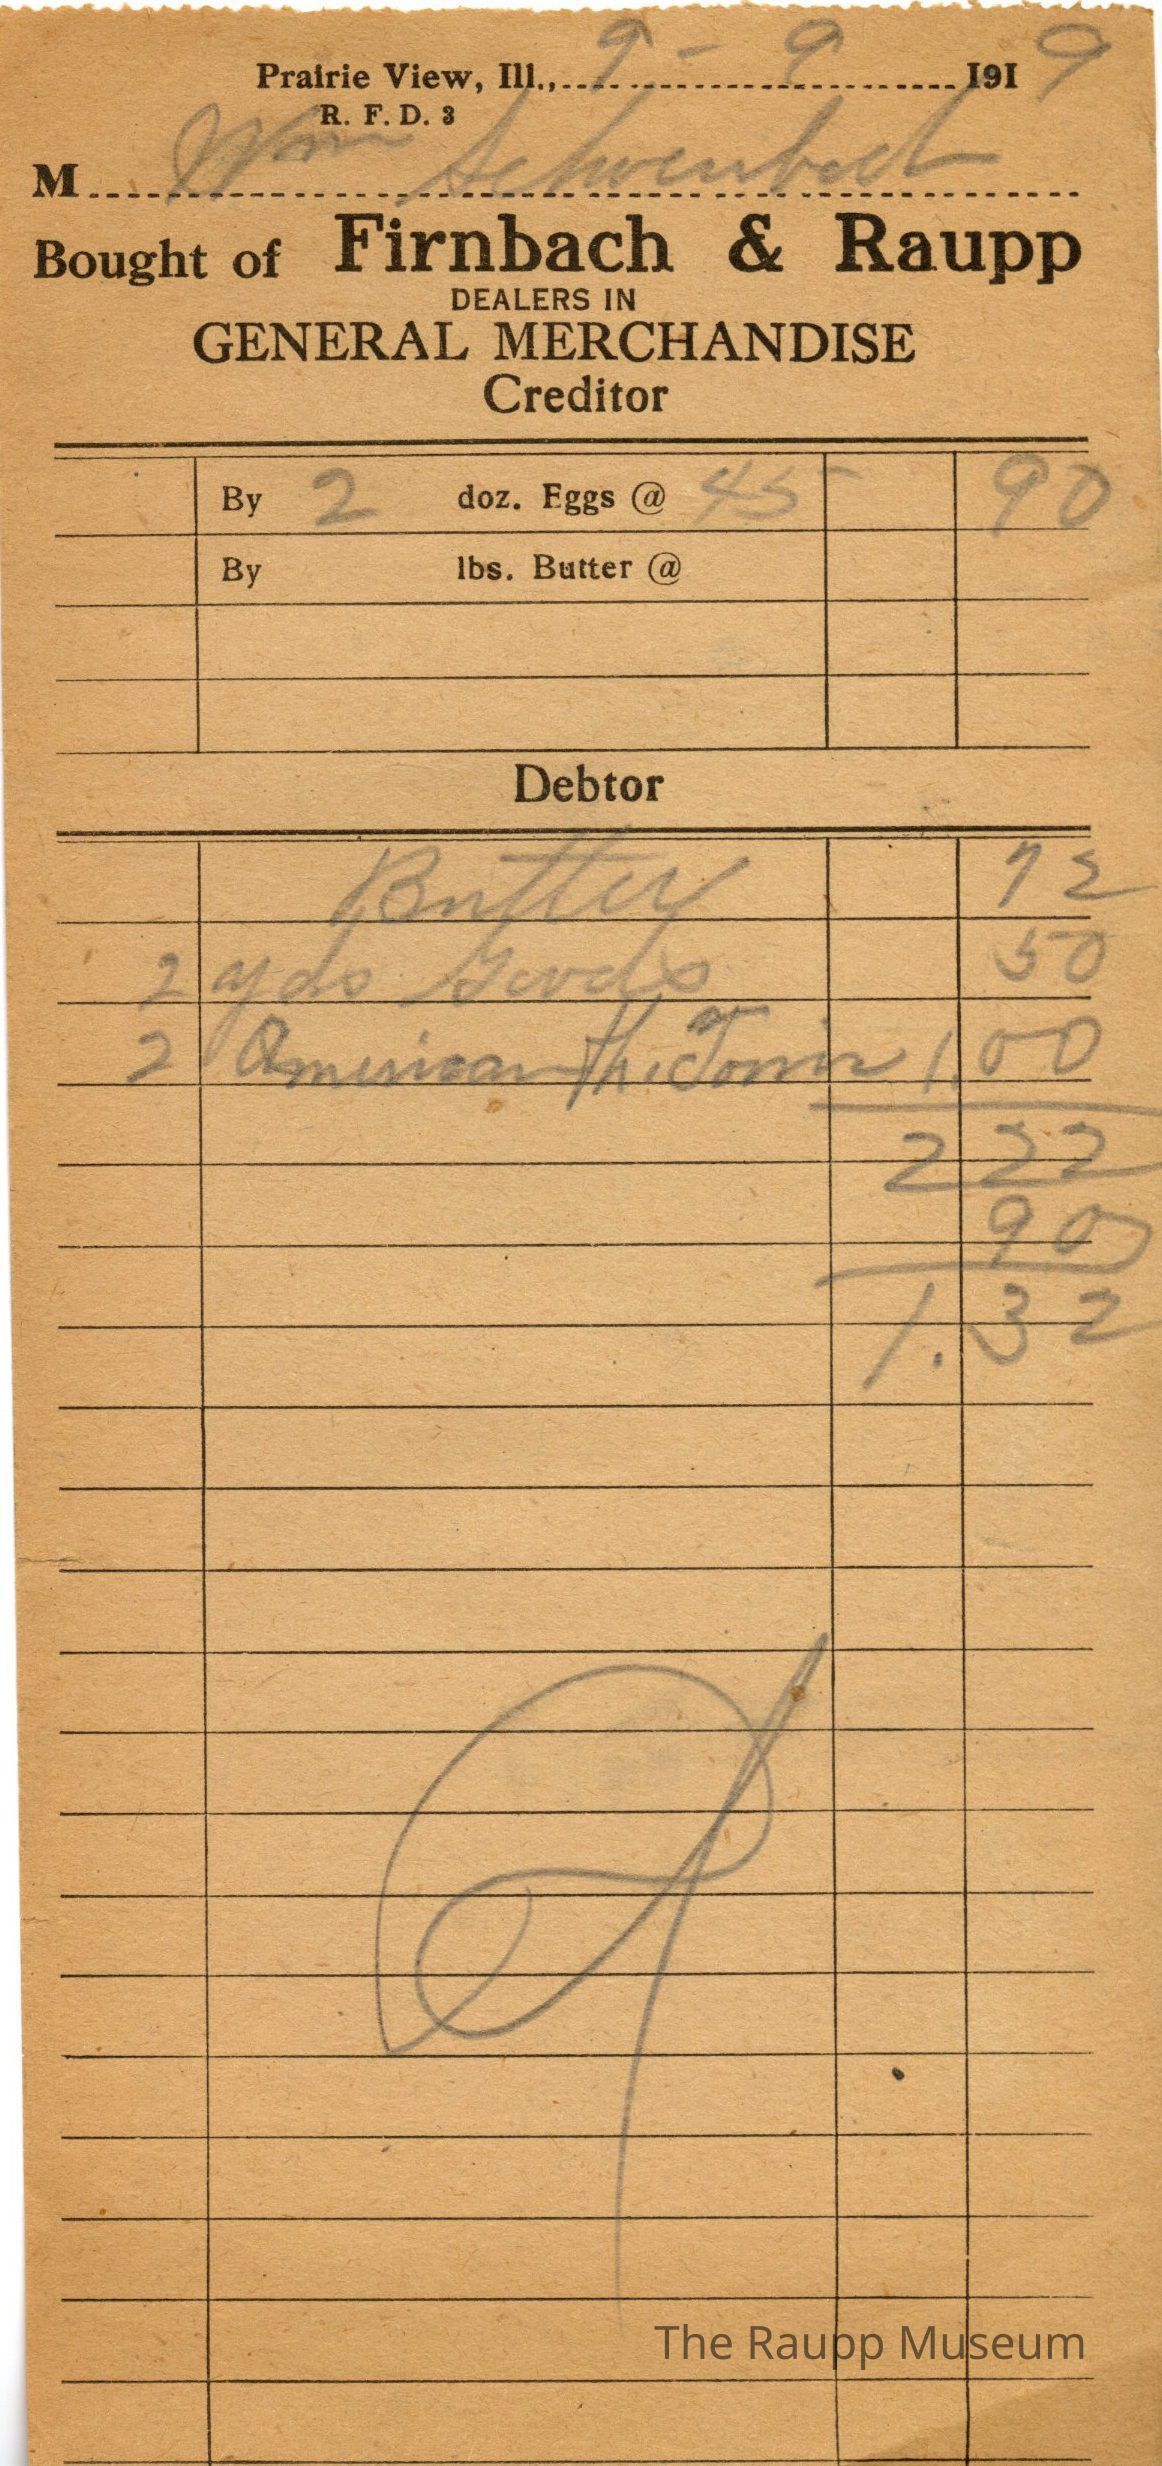 Prairie View, Ill., 9 - 9 1919
R. F. D. 3
M Wm
Bought of Firnbach & Raupp
DEALERS IN
GENERAL MERCHANDISE
Creditor
By 2 doz. Eggs @ 45 90
By lbs. Butter @
Debtor
Butter 72
2 yds Goods 50
2 American 1.00
2 22
90
1.32
The Raupp Museum